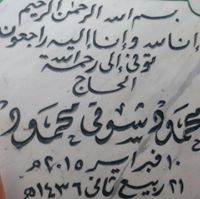 بسم الله الرحمن الرحيم
إنا لله وإنا إليه راجعون
توفى إلى رحمة الله
الحاج
محمود شوقى محمود
١٠ فبراير ٢٠١٥م
٢١ ربيع ثانى ١٤٣٦هـ